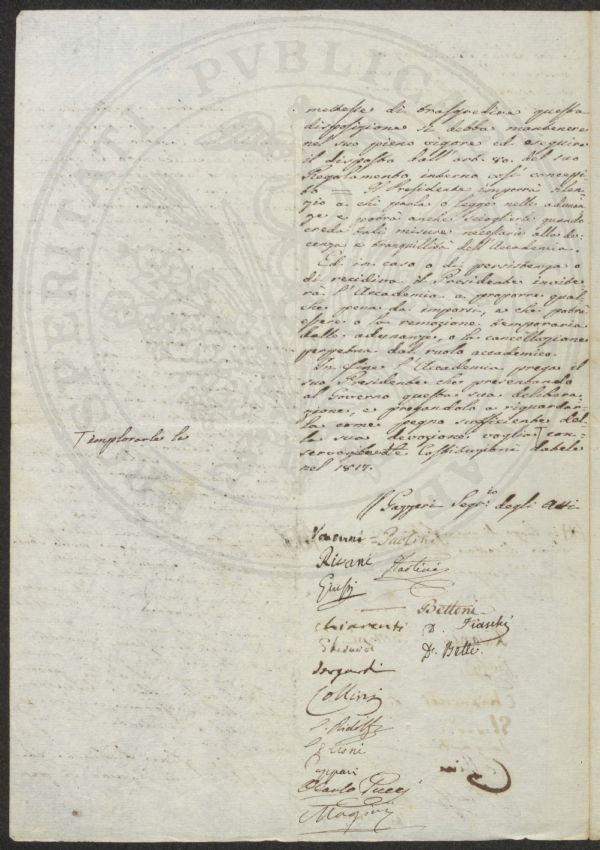 mettesse di trasgredire questa
disposizione si debba mantenere
nel suo pieno vigore ed eseguire
il disposto dall'art. 80. del suo
Regolamento interno così concepi
to = Il Presidente imporrà silen
zio a chi parla o legge nelle adunan
ze e potrà anche sciogliersi quando
creda tali misure necessarie alla de-
cenza e tranquillità dell'Accademia.
Ed in caso o di persistenza o
di recidiva il Presidente invite
rà l'Accademia a proporre qual
che pena da imporsi, e che potrà
essere o la remozione temporaria
dalle adunanze, o la cancellazione
perpetua dal ruolo accademico.
In fine l'Accademia prega il
suo Presidente che presentando
al Governo questa sua delibera
zione, e pregandolo a riguardar
la come pegno sufficiente del
la sua devozione voglia con-
servarle le Costituzioni datele
nel 1817.
Implorarle le
Gazzeri Segr.io degli Atti
Paolini
Rivani
Giusti
Bettoni
Chiarenti D. Fiaschi
Dr. Betti
Collini
C. Ridolfi
Carlo Pucci